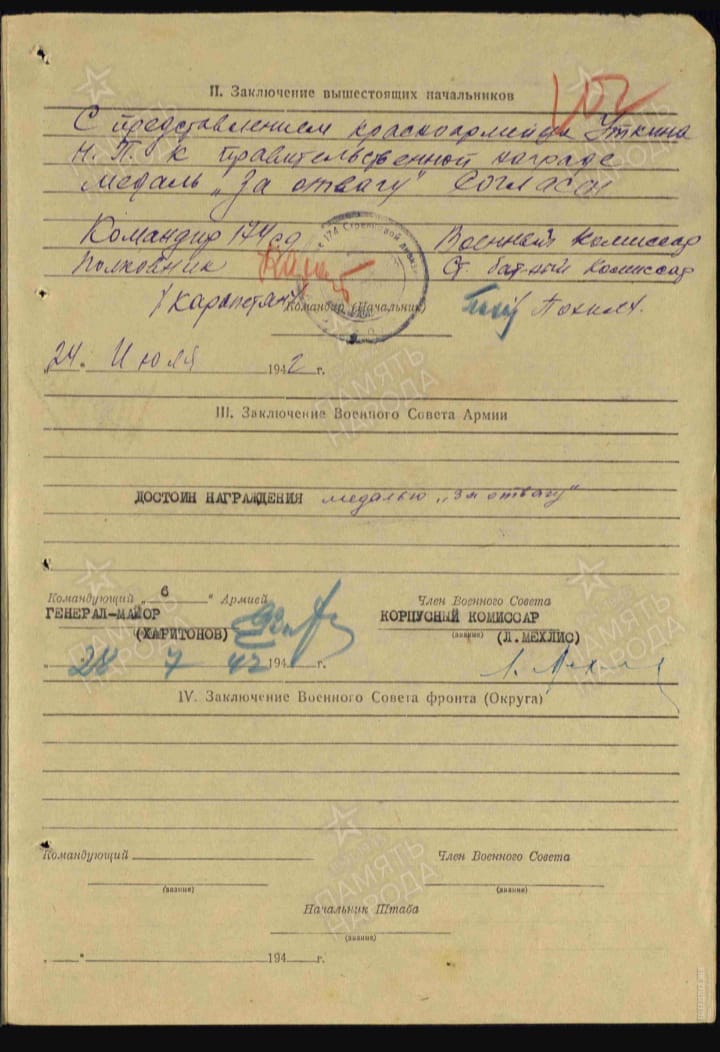 II. Заключение вышестоящих начальников
С представлением красноармейца Уткина
Н. П. к правительственной награде
медаль „За отвагу" Согласен
Командир 174 сд Военный комиссар
Полковник Ст. бат-ный комиссар
/Карапетян/ Командир (Начальник)
„24" Июля 1942 г.
III. Заключение Военного Совета Армии
ДОСТОИН НАГРАЖДЕНИЯ медалью „за отвагу"
Командующий „6" Армией Член Военного Совета
ГЕНЕРАЛ-МАЙОР КОРПУСНЫЙ КОМИССАР
(ХАРИТОНОВ) (звание) (Л.МЕХЛИС)
„28 7 42 194 г.
IV. Заключение Военного Совета фронта (Округа)
Командующий Член Военного Совета
(звание) (звание)
Начальник Штаба
(звание)
„ " 194 г.
ПАМЯТЬ НАРОДА